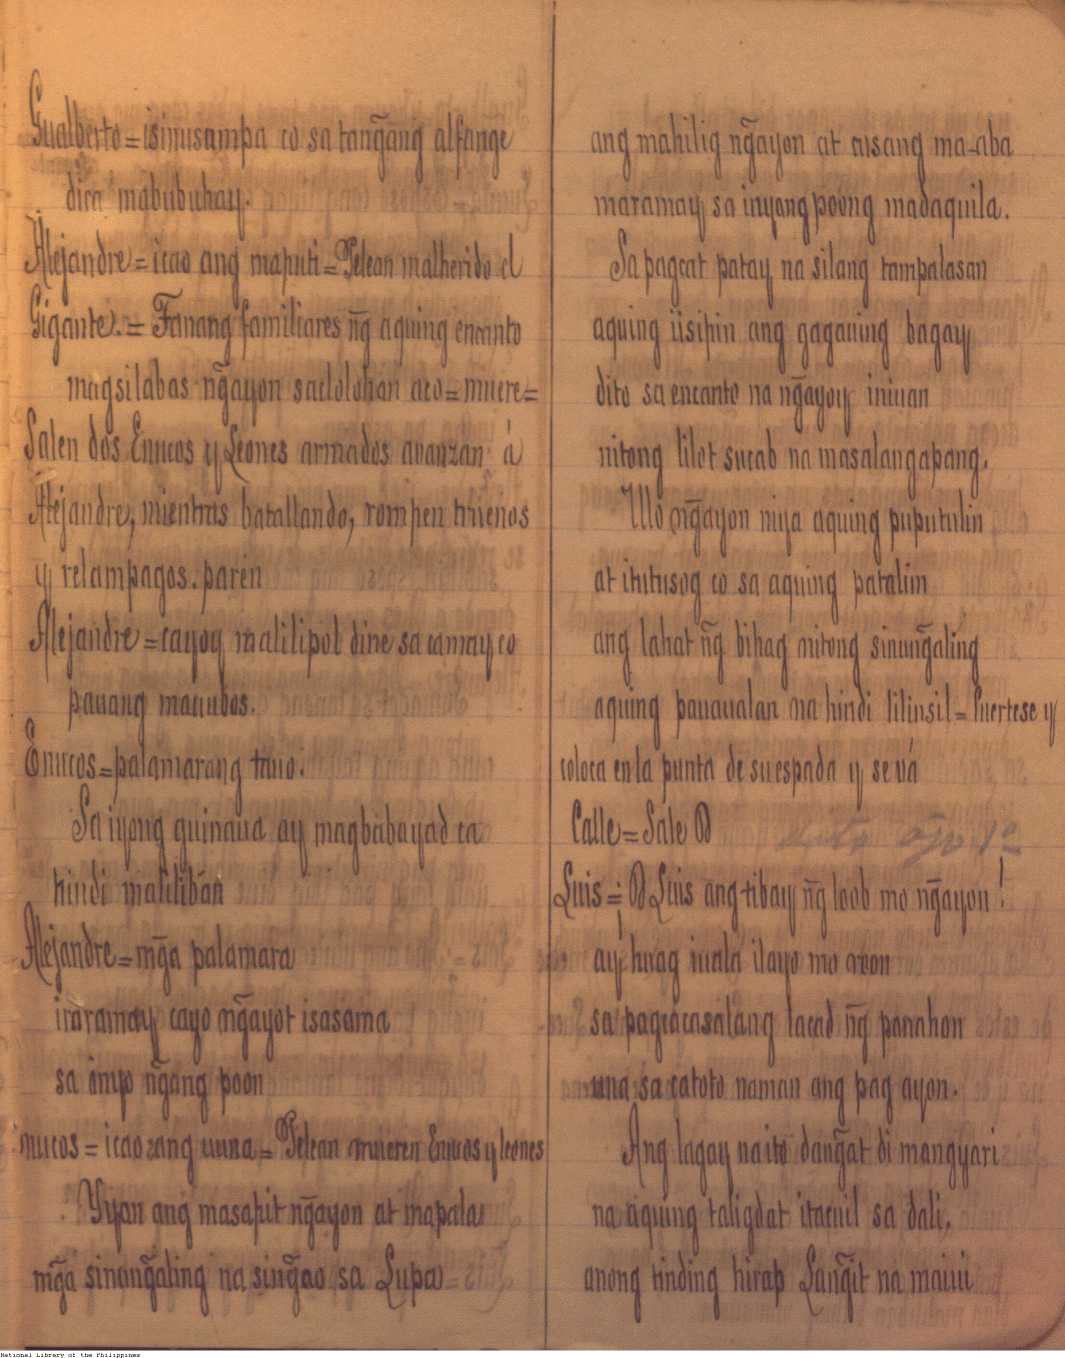 Gualberto = isinusumpa co sa tanḡang alfange
dica mabubuhay.
Alejandre = icao ang maputi = Pelean malherido el
Gigante. = Fanang familiares nḡ aquing encanto
magsilabas nḡayon saclolohan aco = muere =
Salen dos Enucos y Leones armados avanzan á
Alejandre, mientras batallando, rompen truenos
y relampagos. paren
Alejandre = cayoy malilipol dine sa camay co
pauang
Enucos = palamarang tauo.
Sa iyong guinaua ay magbabayad ca
hindi maliliban
Alejandre = mḡa palamara
iraramay cayo nḡayot isasama
sa imp̄o nḡang poon
Enucos = icao ang uuna = Pelean mueren Enucos y leones
Yiyan ang masapit nḡayon at mapala
mḡa sinunḡaling na sinḡao sa Lupa
ang mahilig nḡayon at aisang ma-aba
maramay sa inyong poong madaquila.
Sa pagcat patay na silang tampalasan
aquing iisipin ang gagauing bagay
dito sa encanto na nḡayoy iniuan
nitong lilot sucab na masalangapang.
Ulo nḡayon niya aquing puputulin
at itutusog co sa aquing patalim
ang lahat nḡ bihag nitong sinunḡaling
aquing pauaualan na hindi lilinsil = Puertese y
coloca en la punta de su espada y se vá
Calle = Sale D
ojo 1º
Luis = ¡ D Luis ang tibay nḡ loob mo nḡayon!
ay huag iuala ilayo mo
sa pagcacasalang lacad nḡ panahon
una sa catoto naman ang pag ayon.
Ang lagay na ito danḡat di mangyari
na aquing taligdat itacuil sa dali,
anong tinding hirap Lanḡit na